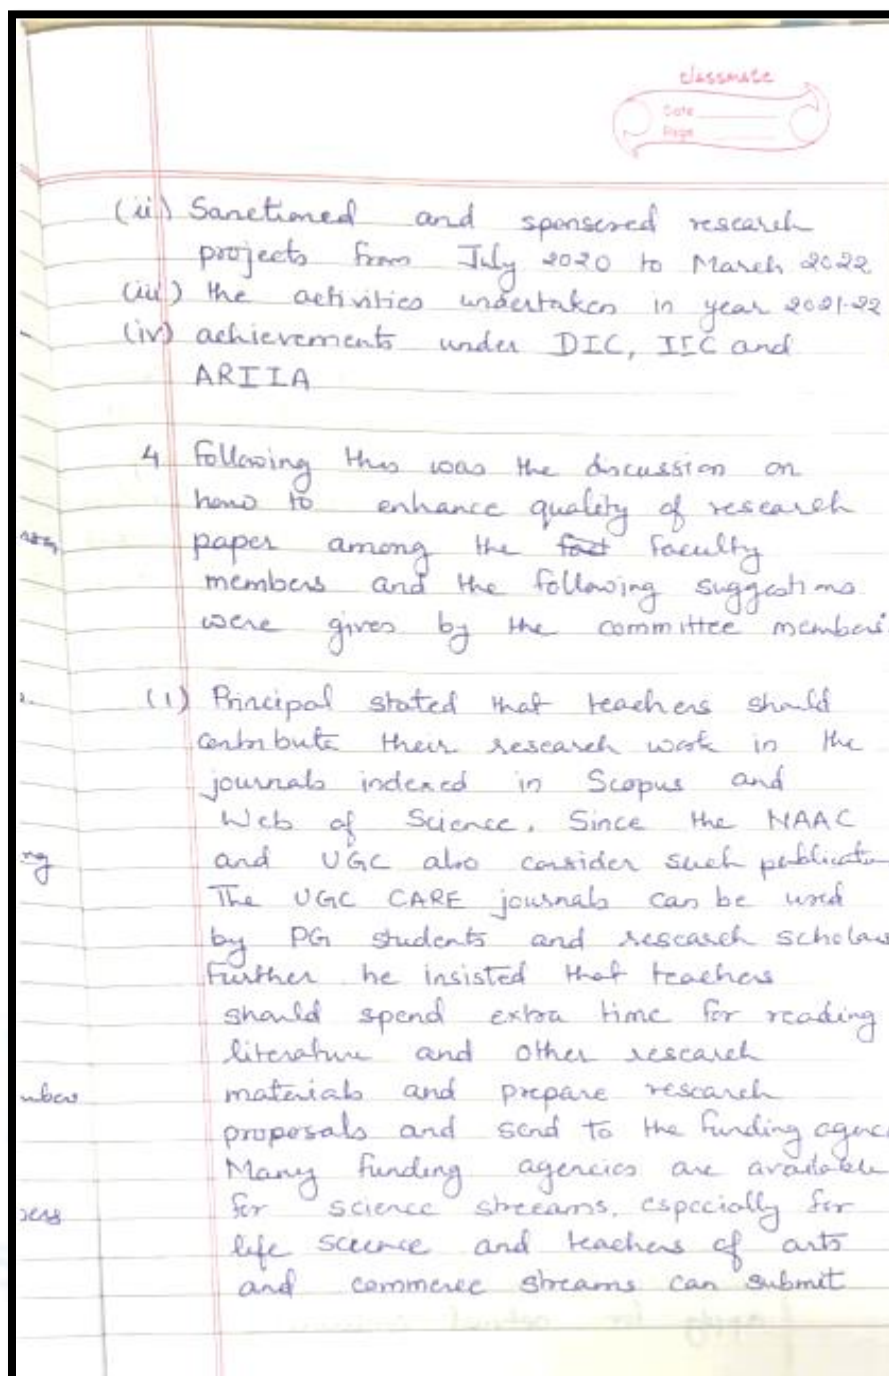 classmate
Date
Page
(ii) Sanctioned and sponsered research
projects from July 2020 to March 2022
(iii) the activities undertaken in year 2021-22
(iv) achievements under DIC, IIC and
ARIIA
4 Following this was the discussion on
how to enhance quality of research
paper among the faculty
members and the following suggestions
were given by the committee members
(1) Principal stated that teachers should
contribute their research work in the
journals indexed in Scopus and
Web of Science. Since the NAAC
and UGC also consider such publicatio
The UGC CARE journals can be used
by PG students and research scholars
Further he insisted that teachers
should spend extra time for reading
literature and other research
materials and prepare research
proposals and send to the funding agenc
Many funding agencies are available
for science streams, especially for
life science and teachers of arts
and commerce streams can submit